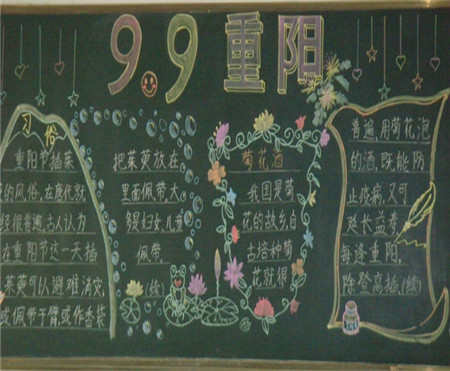 9.9重阳
习俗
重阳节插茱
的风俗,在唐代就
经很普遍。古人认为
在重阳节这一天插
茱萸可以避难消灾
或佩带于臂,或作香袋
把茱萸放在
里面佩带大
多是妇女、儿童
佩带
(续)
菊花酒
我国是菊
花的故乡,自
古培种菊
花就很
普遍,用菊花泡
的酒,既能防
止疫病,又可
延长益寿
每逢重阳,
除登高插(续)